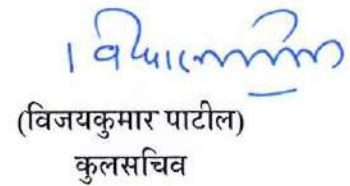 (विजयकुमार पाटील)
कुलसचिव